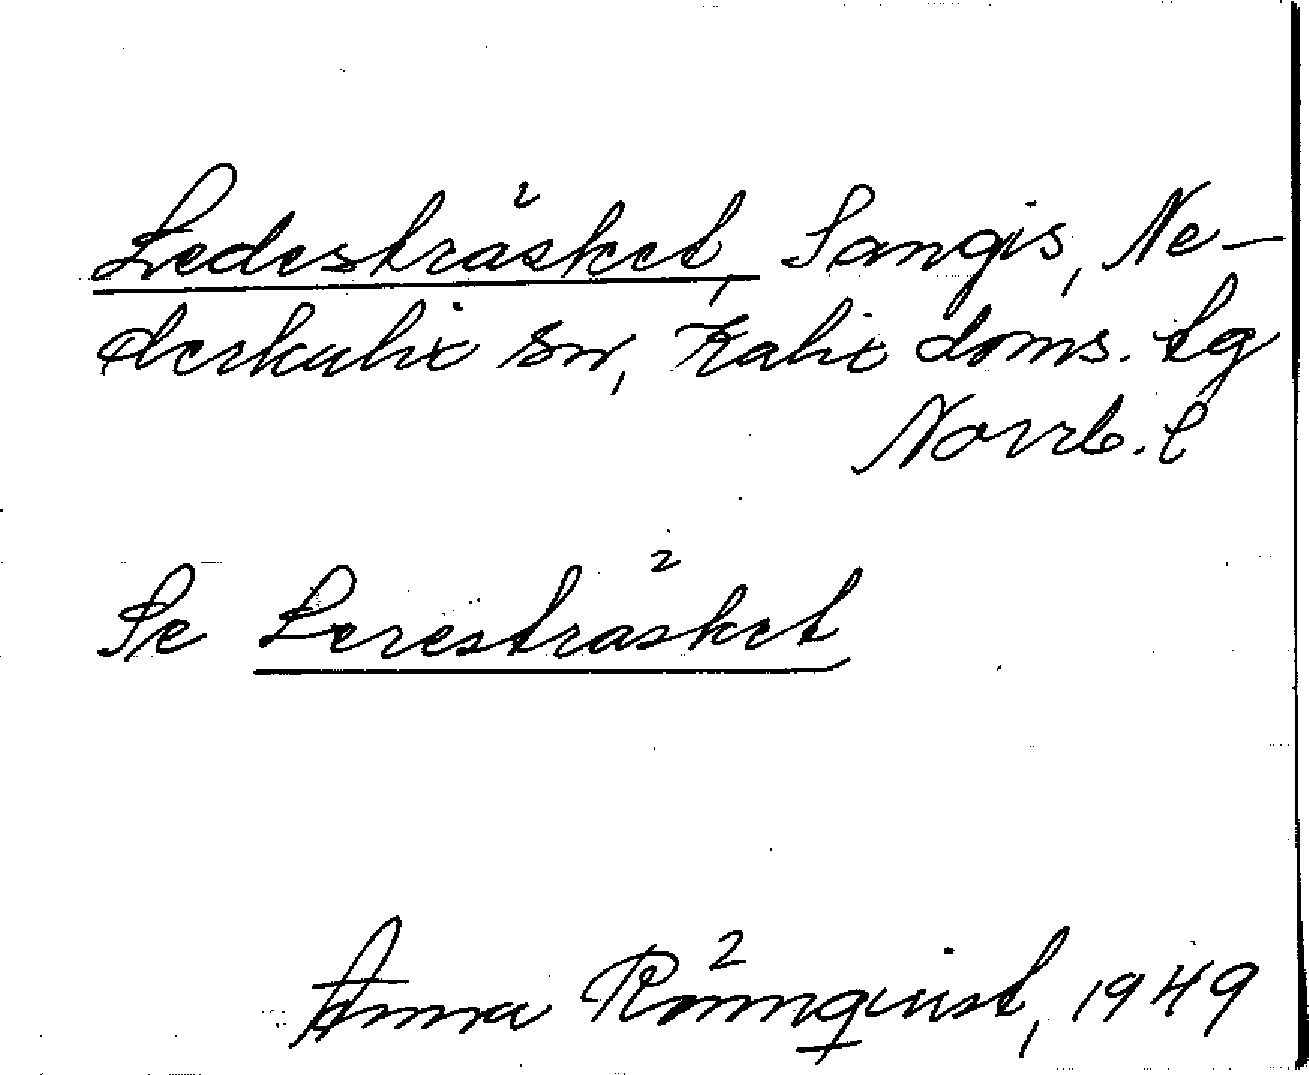 Ledesträsket, Sangis, Ne-
derkalix sn, Kalix doms. tg
Norrb. l
Se Leresträsket
Anna Rönnqvist, 1949